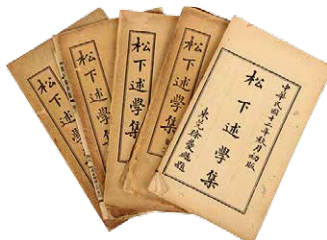 松下述學集
松下述學集
松下述學集
松下述學集
中華民國十二年月初版
松下述學集
東莞徐題